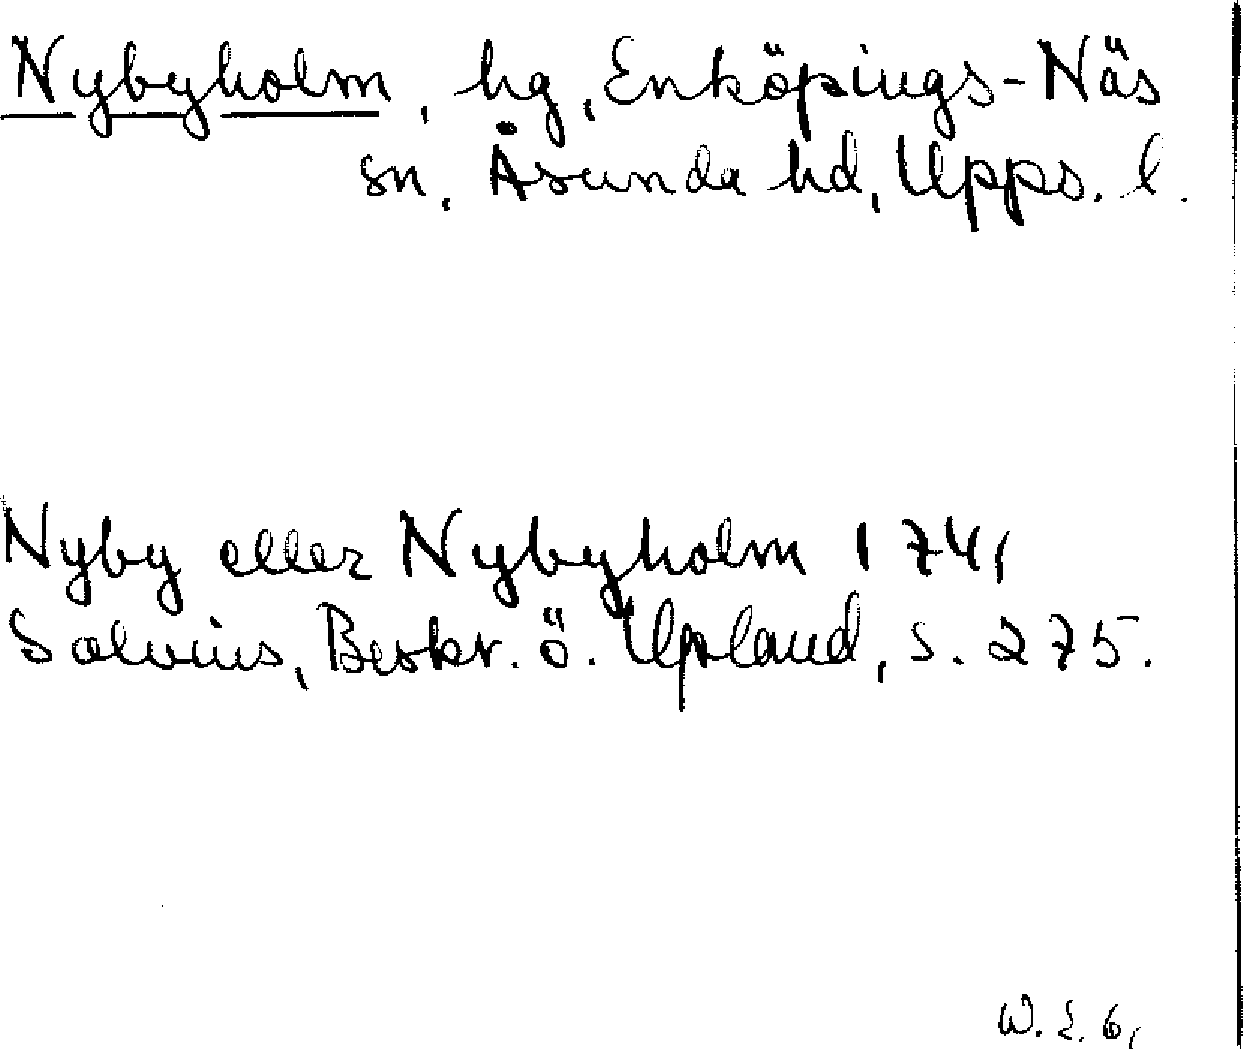 Nybyholm, hg, Enköpings-Näs
sn, Åsunda hd, Upps. l.
Nyby eller Nybyholm 1741
Salvius, Beskr. ö. Upland, s. 275.
W. E. 61